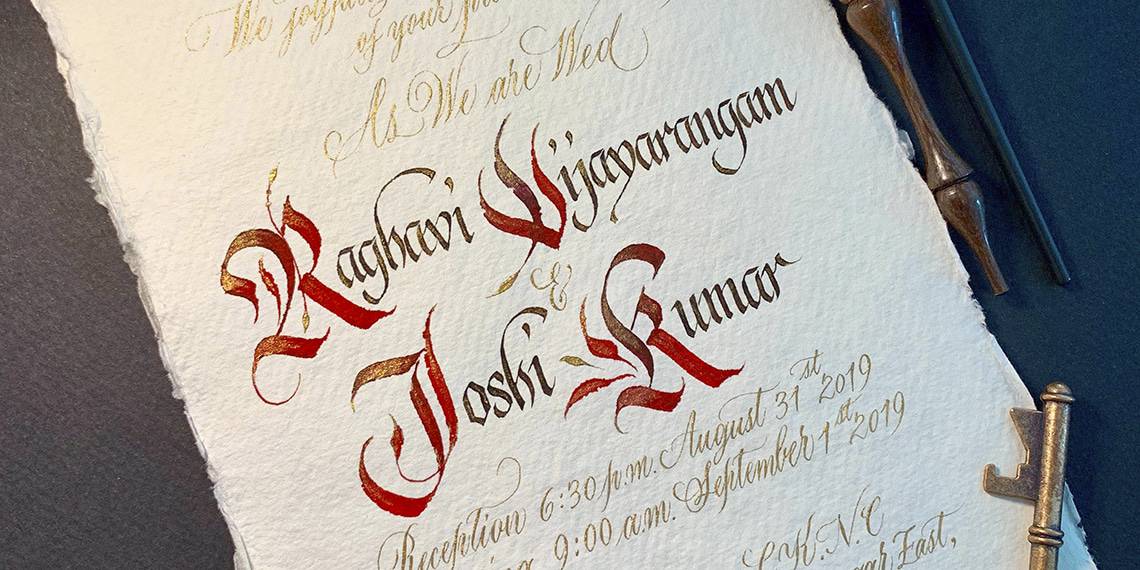 We
of your
As We are Wed
Raghavi Vijayarangam
&
Joshi Kumar
Reception 6:30 p.m. August 31st 2019
9:00 a.m. September 1st 2019
East,